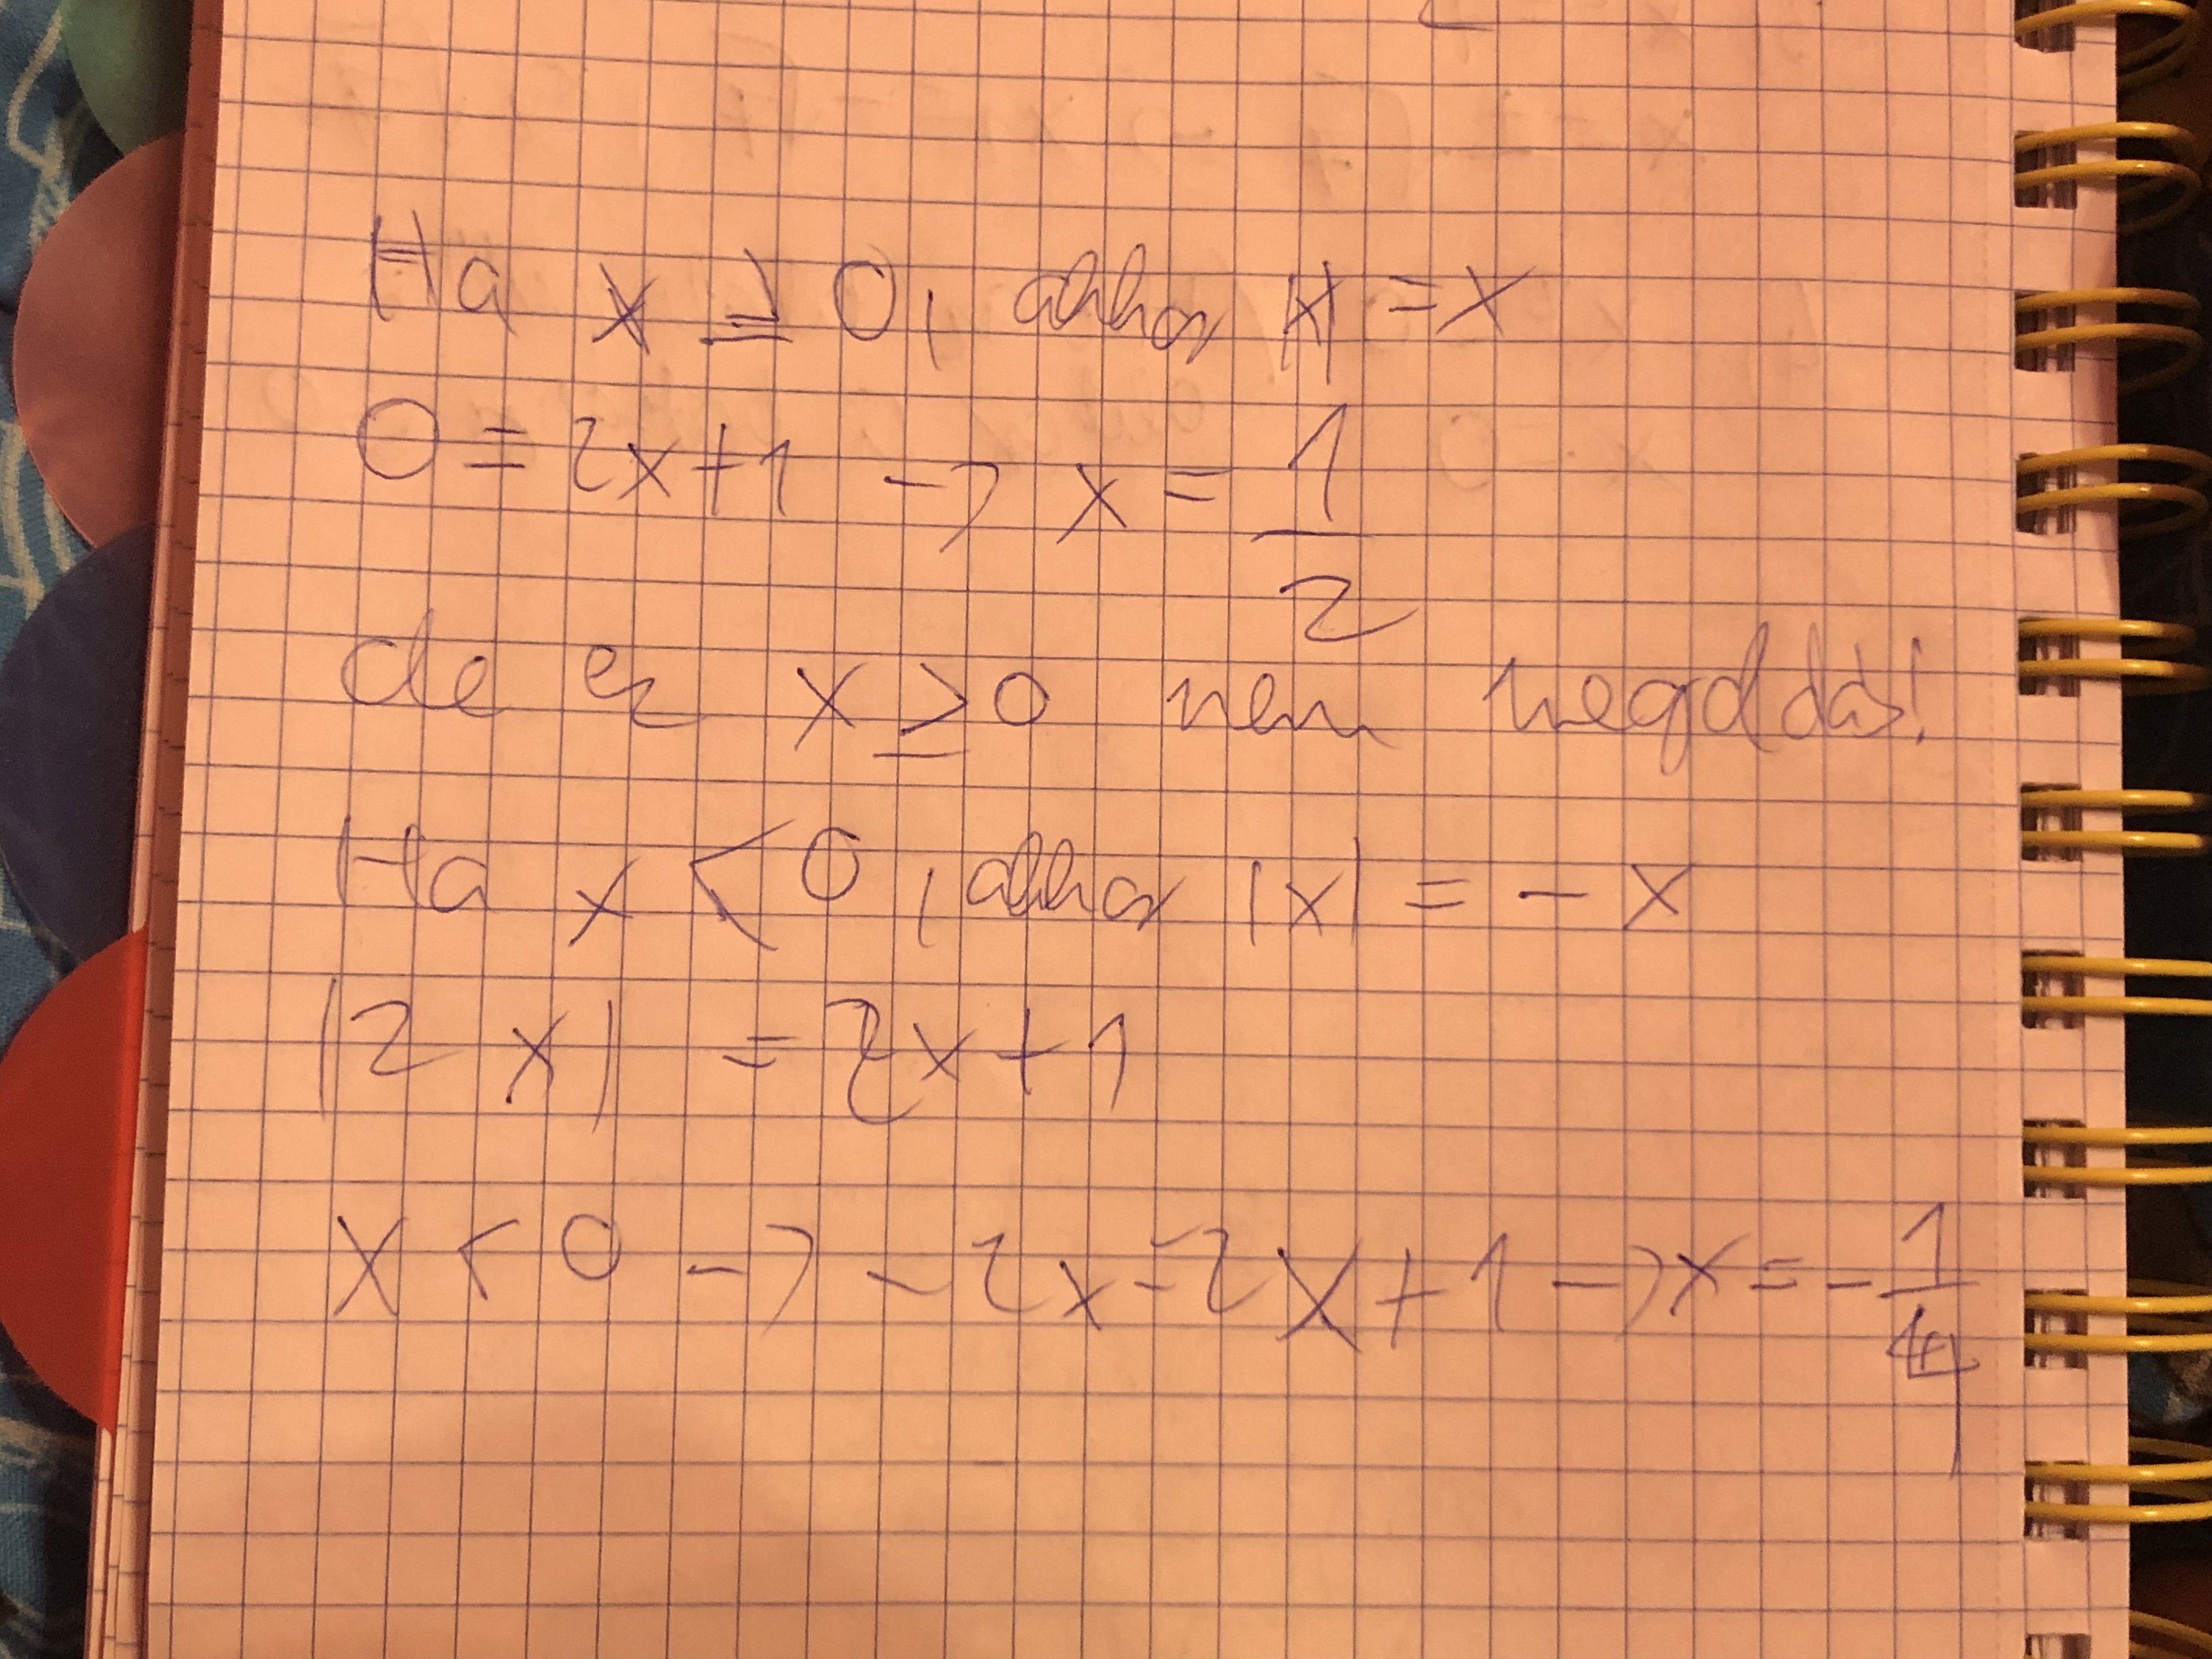 Ha x ≥ 0, akkor |x| = x
0 = 2x+1 → x = 1/2
de ez x ≥ 0 nem megoldás!
Ha x < 0, akkor |x| = - x
|2 x| = 2x+1
x < 0 → - 2x = 2x+1 → x = - 1/4